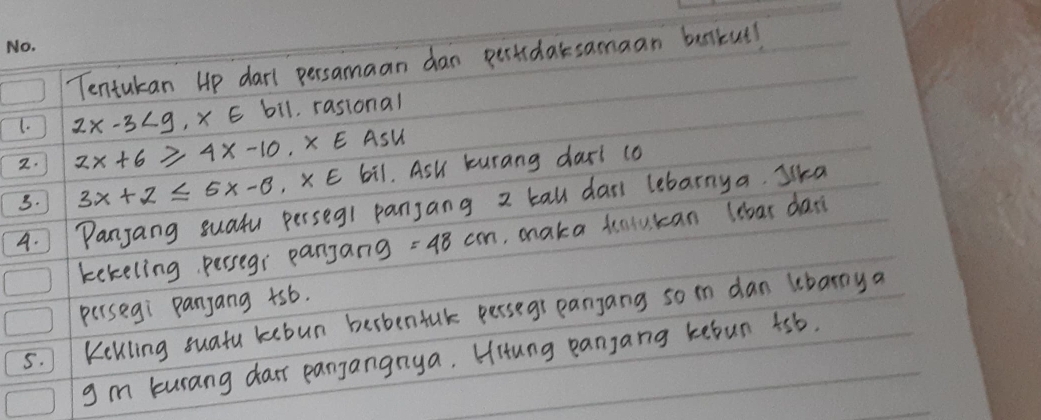 No.
Tentukan HP dari persamaan dan pertidaksamaan berikut!
1. 2x - 3 < 9, x ∈ bil. rasional
2. 2x + 6 ≥ 4x - 10, x ∈ Asli
3. 3x + 2 ≤ 5x - 8, x ∈ bil. Asli kurang dari 10
4. Panjang suatu persegi panjang 2 kali dari lebarnya. Jika
kekeling persegi panjang = 48 cm, maka tentukan lebar dari
persegi panjang tsb.
5. Kekling suatu kebun berbentuk persegi panjang 50 m dan lebarnya
9 m kurang dari panjangnya. Hitung panjang kebun tsb.